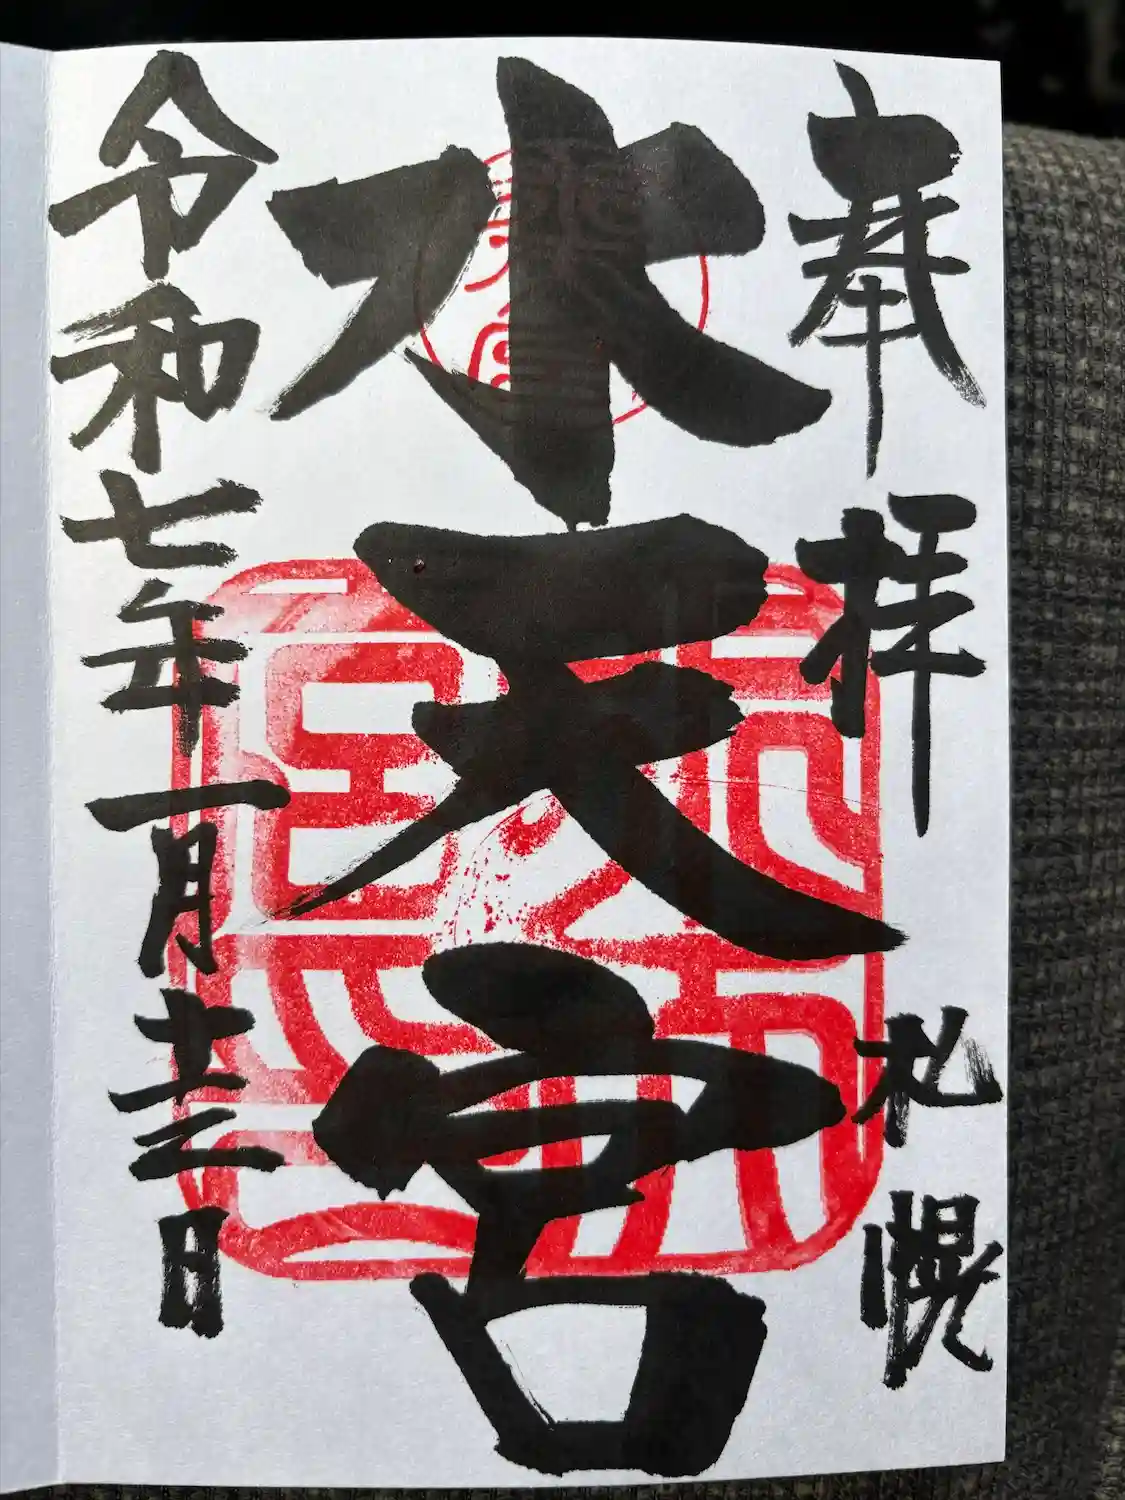 奉拝 札幌
水天宮
令和七年一月十三日